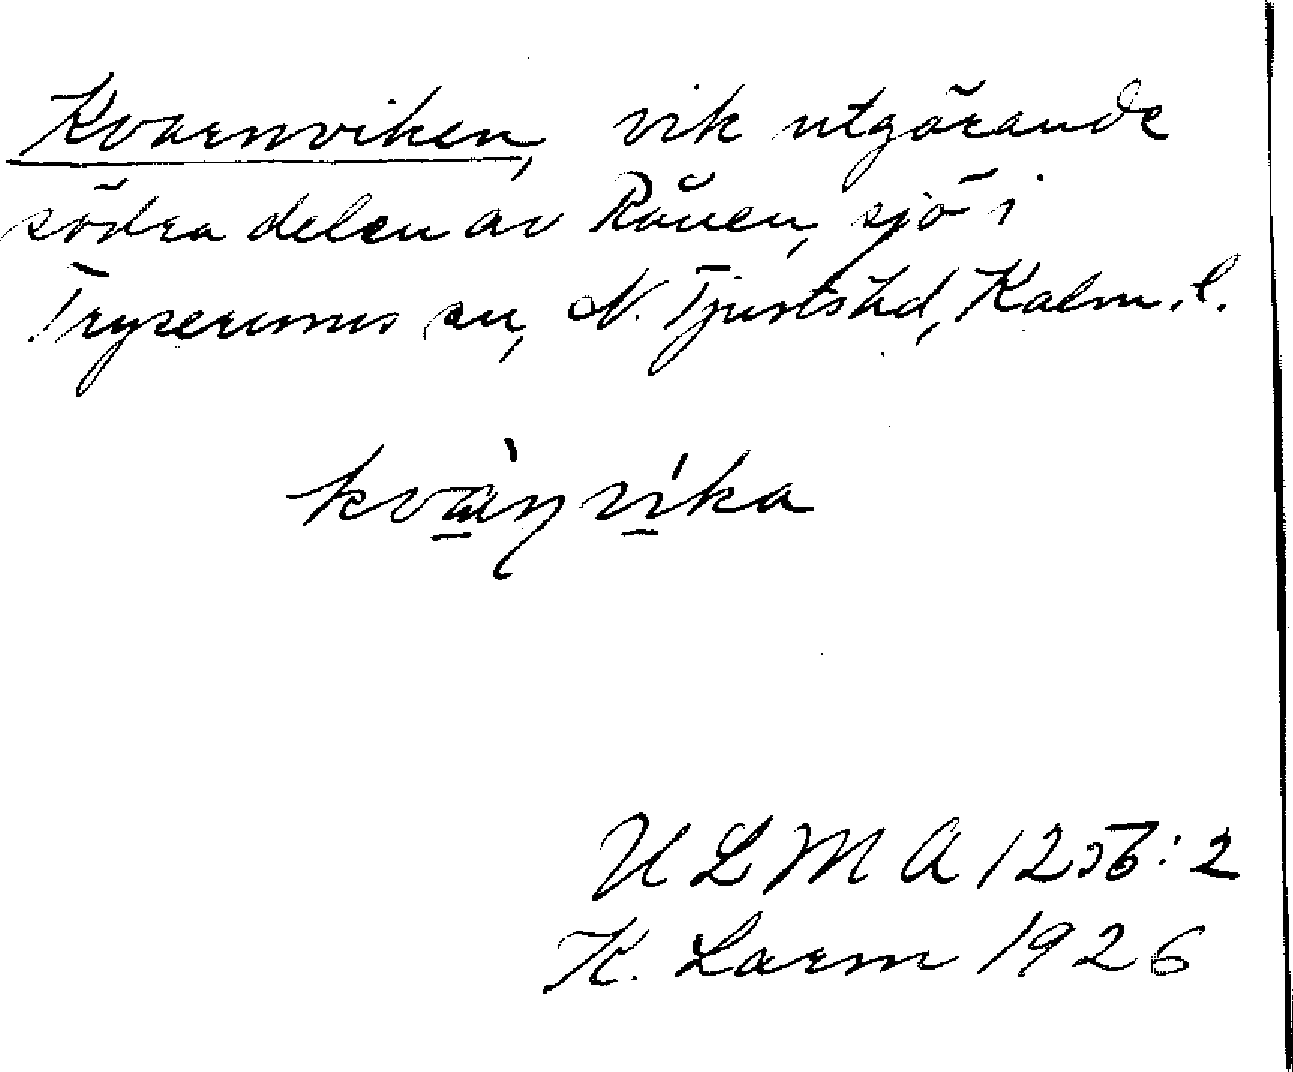 Kvarnviken, vik utgörande
södra delen av Råven, sjö i
Tryserums sn, N. Tjusts hd, Kalm. l.
kvàn víka
U L M A 1256:2
K. Larm 1926